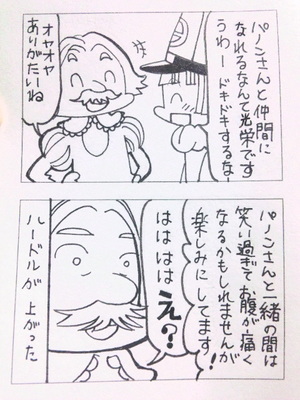 パノンさんと仲間に
なれるなんて光栄です
うわー ドキドキするなー
オヤオヤ
ありがたいね
パノンさんと一緒の間は
笑い過ぎてお腹が痛く
なるかもしれませんが
楽しみにしてます!
ははは
え?
ハードルが 上がった